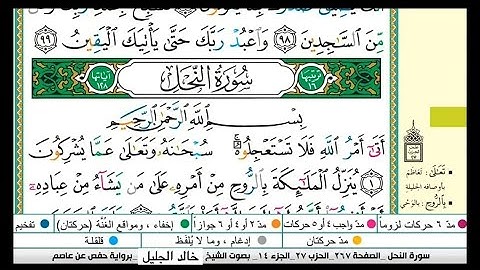 مِّنَ ٱلسَّٰجِدِينَ ٩٨ وَٱعۡبُدۡ رَبَّكَ حَتَّىٰ يَأۡتِيَكَ ٱلۡيَقِينُ ٩٩
ترتيبها ١٦ سُورَةُ النَّحْلِ آياتها ١٢٨
بِسۡمِ ٱللَّهِ ٱلرَّحۡمَٰنِ ٱلرَّحِيمِ
أَتَىٰٓ أَمۡرُ ٱللَّهِ فَلَا تَسۡتَعۡجِلُوهُۚ سُبۡحَٰنَهُۥ وَتَعَٰلَىٰ عَمَّا يُشۡرِكُونَ
١ يُنَزِّلُ ٱلۡمَلَٰٓئِكَةَ بِٱلرُّوحِ مِنۡ أَمۡرِهِۦ عَلَىٰ مَن يَشَآءُ مِنۡ عِبَادِهِۦٓ
تَعَالَى: تَعَاظَمَ
بأوصافه الجليلة
بِالرُّوحِ: بالوَحْيِ
مدّ ٦ حركات لزوماً مدّ واجب ٤ أو ٥ حركات مدّ ٢ أو ٤ أو ٦ جوازاً إخفاء، ومواقع الغُنَّة (حركتان) تفخيم
مدّ حركتان إدغام، وما لا يُلفَظ قلقلة
سورة النحل _الصفحة ٢٦٧ _الحزب ٢٧ _الجزء ١٤ _بصوت الشيخ خالد الجليل _برواية حفص عن عاصم